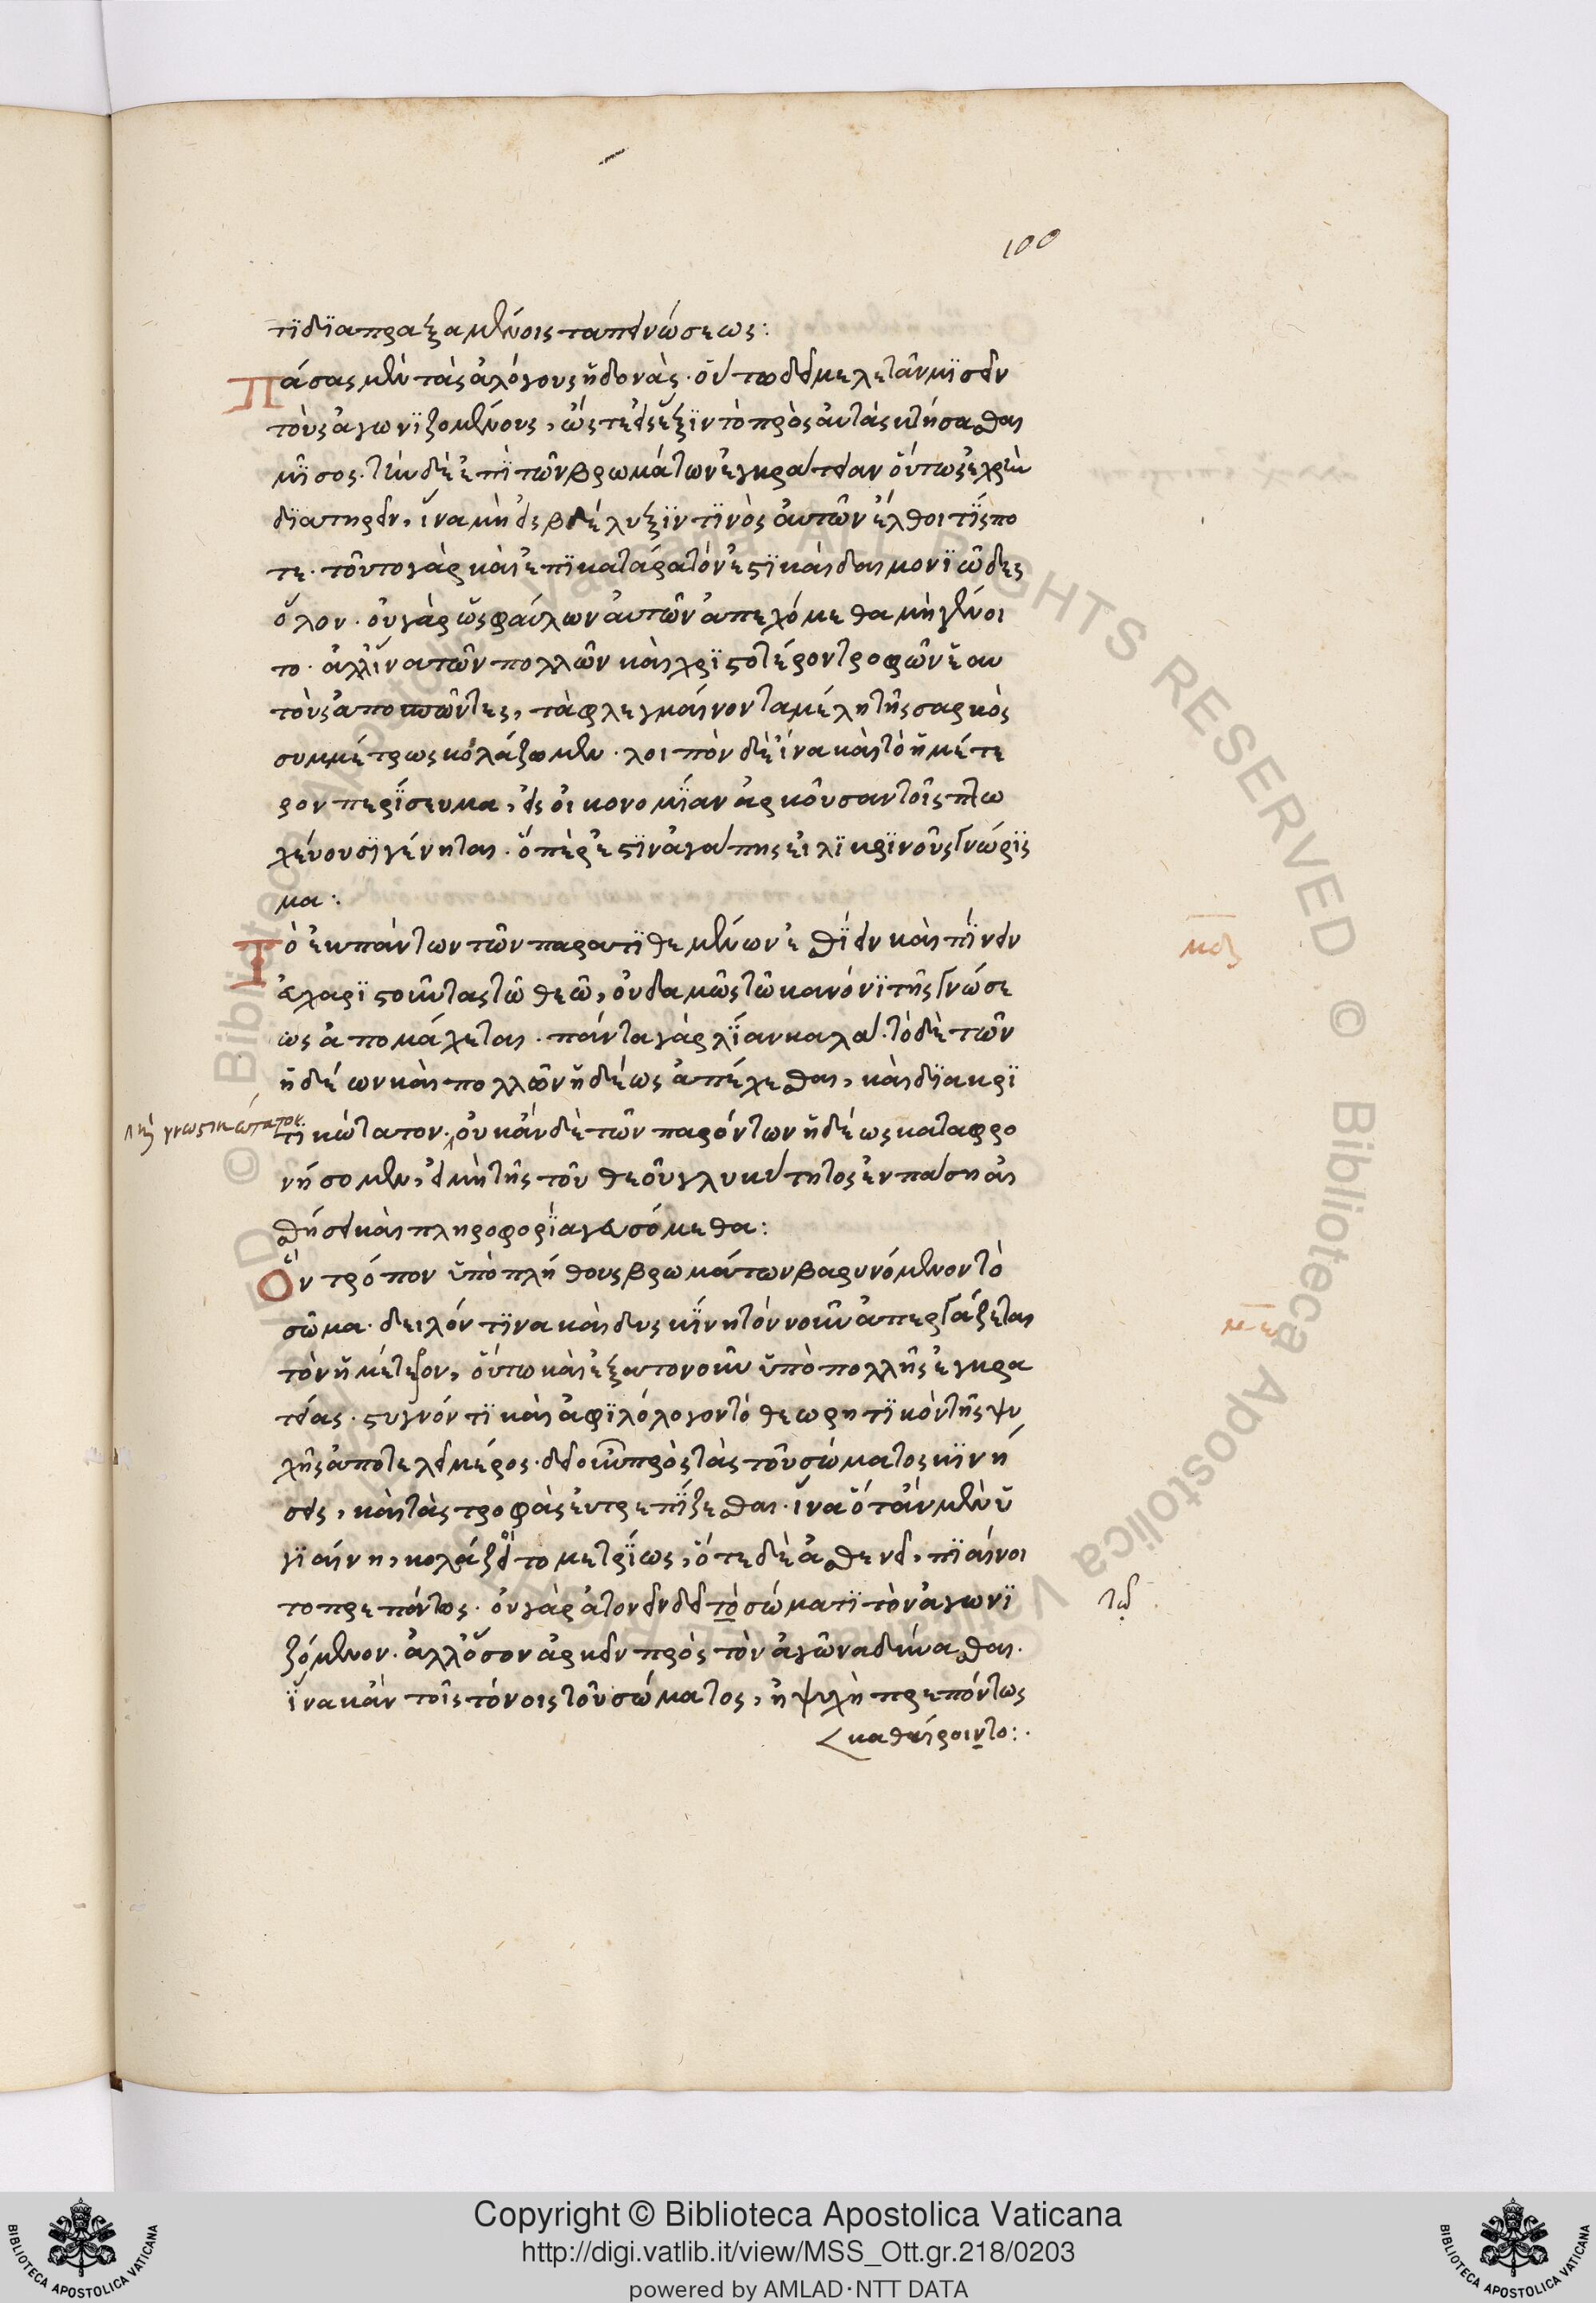 100
τι διαπραξαμένοις ταπεινώσεως:
Πάσας μὲν τὰς ἀλόγους ἡδονὰς· οὕτω δεῖ μελετᾶν μισεῖν
τοὺς ἀγωνιζομένους, ὥστε εἰς ἕξιν τὸ πρὸς αὐτὰς κτήσασθαι
μῖσος· τὴν δὲ ἐπὶ τῶν βρωμάτων ἐγκράτειαν οὕτως ἐχρὴν
διατηρεῖν, ἵνα μὴ εἰς βδέλυξιν τινὸς αὐτῶν ἔλθοι τίς πο
τε· τοῦτο γὰρ καὶ ἐπικατάρατόν ἐστι καὶ δαιμονιῶδες
ὅλον· οὐ γὰρ ὡς φαύλων αὐτῶν ἀπεχόμεθα μὴ γένοι
το· ἀλλ' ἵνα τῶν πολλῶν καὶ χριστοτέρον τροφῶν ἑαυ
τοὺς ἀποσπῶντες, τὰ φλεγμαίνοντα μέλη τῆς σαρκὸς
συμμέτρως κολάζωμεν· λοιπὸν δὲ ἵνα καὶ τὸ ἡμέτε
ρον περίσευμα, εἰς οἰκονομίαν ἀρκοῦσαν τοῖς πτω
χεύουσι γένηται· ὅπέρ ἐστιν ἀγάπης εἰλικρινοῦς γνώρισ
μα:
Τὸ ἐκ πάντων τῶν παρατιθεμένων ἐσθίειν καὶ πίνειν
εὐχαριστοῦντας τῶ θεῶ, οὐδαμῶς τῶ κανόνι τῆς γνώσε
ως ἀπομάχεται· πάντα γὰρ λίαν καλά· τὸ δὲ τῶν
ἡδέων καὶ πολλῶν ἡδέως ἀπέχεσθαι, καὶ διακρι
τικώτατον· οὐκ ἂν δὲ τῶν παρόντων ἡδέως καταφρο
καὶ γνωστικώτατον
νήσομεν, εἰ μὴ τῆς τοῦ θεοῦ γλυκύτητος ἐν πάσῃ αἰ
σθήσει καὶ πληροφορία γευσόμεθα:
Ὃν τρόπον ὑπὸ πλήθους βρωμάτων βαρυνόμενον τὸ
σῶμα· δειλόν τινα καὶ δυσκίνητόν νοῦν ἀπεργάζεται
τὸν ἡμέτερον, οὕτω καὶ ἐξατονοῦν ὑπὸ πολλῆς ἐγκρα
τείας· στυγνόν τι καὶ ἀφιλόλογον τὸ θεωρητικὸν τῆς ψυ
χῆς ἀποτελεῖ μέρος· δεῖ οὖν πρὸς τὰς τοῦ σώματος κινή
σεις, καὶ τὰς τροφὰς εὐτρεπίζεσθαι· ἵνα ὅτ' ἂν μὲν ὑ
γιαίνη, κολάζοιτο μετρίως, ὅτε δὲ ἀσθενεῖ, πιαίνοι
το πρεπόντως· οὐ γὰρ ἀτονεῖν δεῖ τὸ σώματι τὸν ἀγωνι
τῶ
ζόμενον· ἀλλ' ὅσον ἀρκεῖν πρὸς τὸν ἀγῶνα δύνασθαι·
ἵνα κἂν τοῖς πόνοις τοῦ σώματος, ἡ ψυχὴ πρεπόντως
καθαίροιντο:·
μδ
με